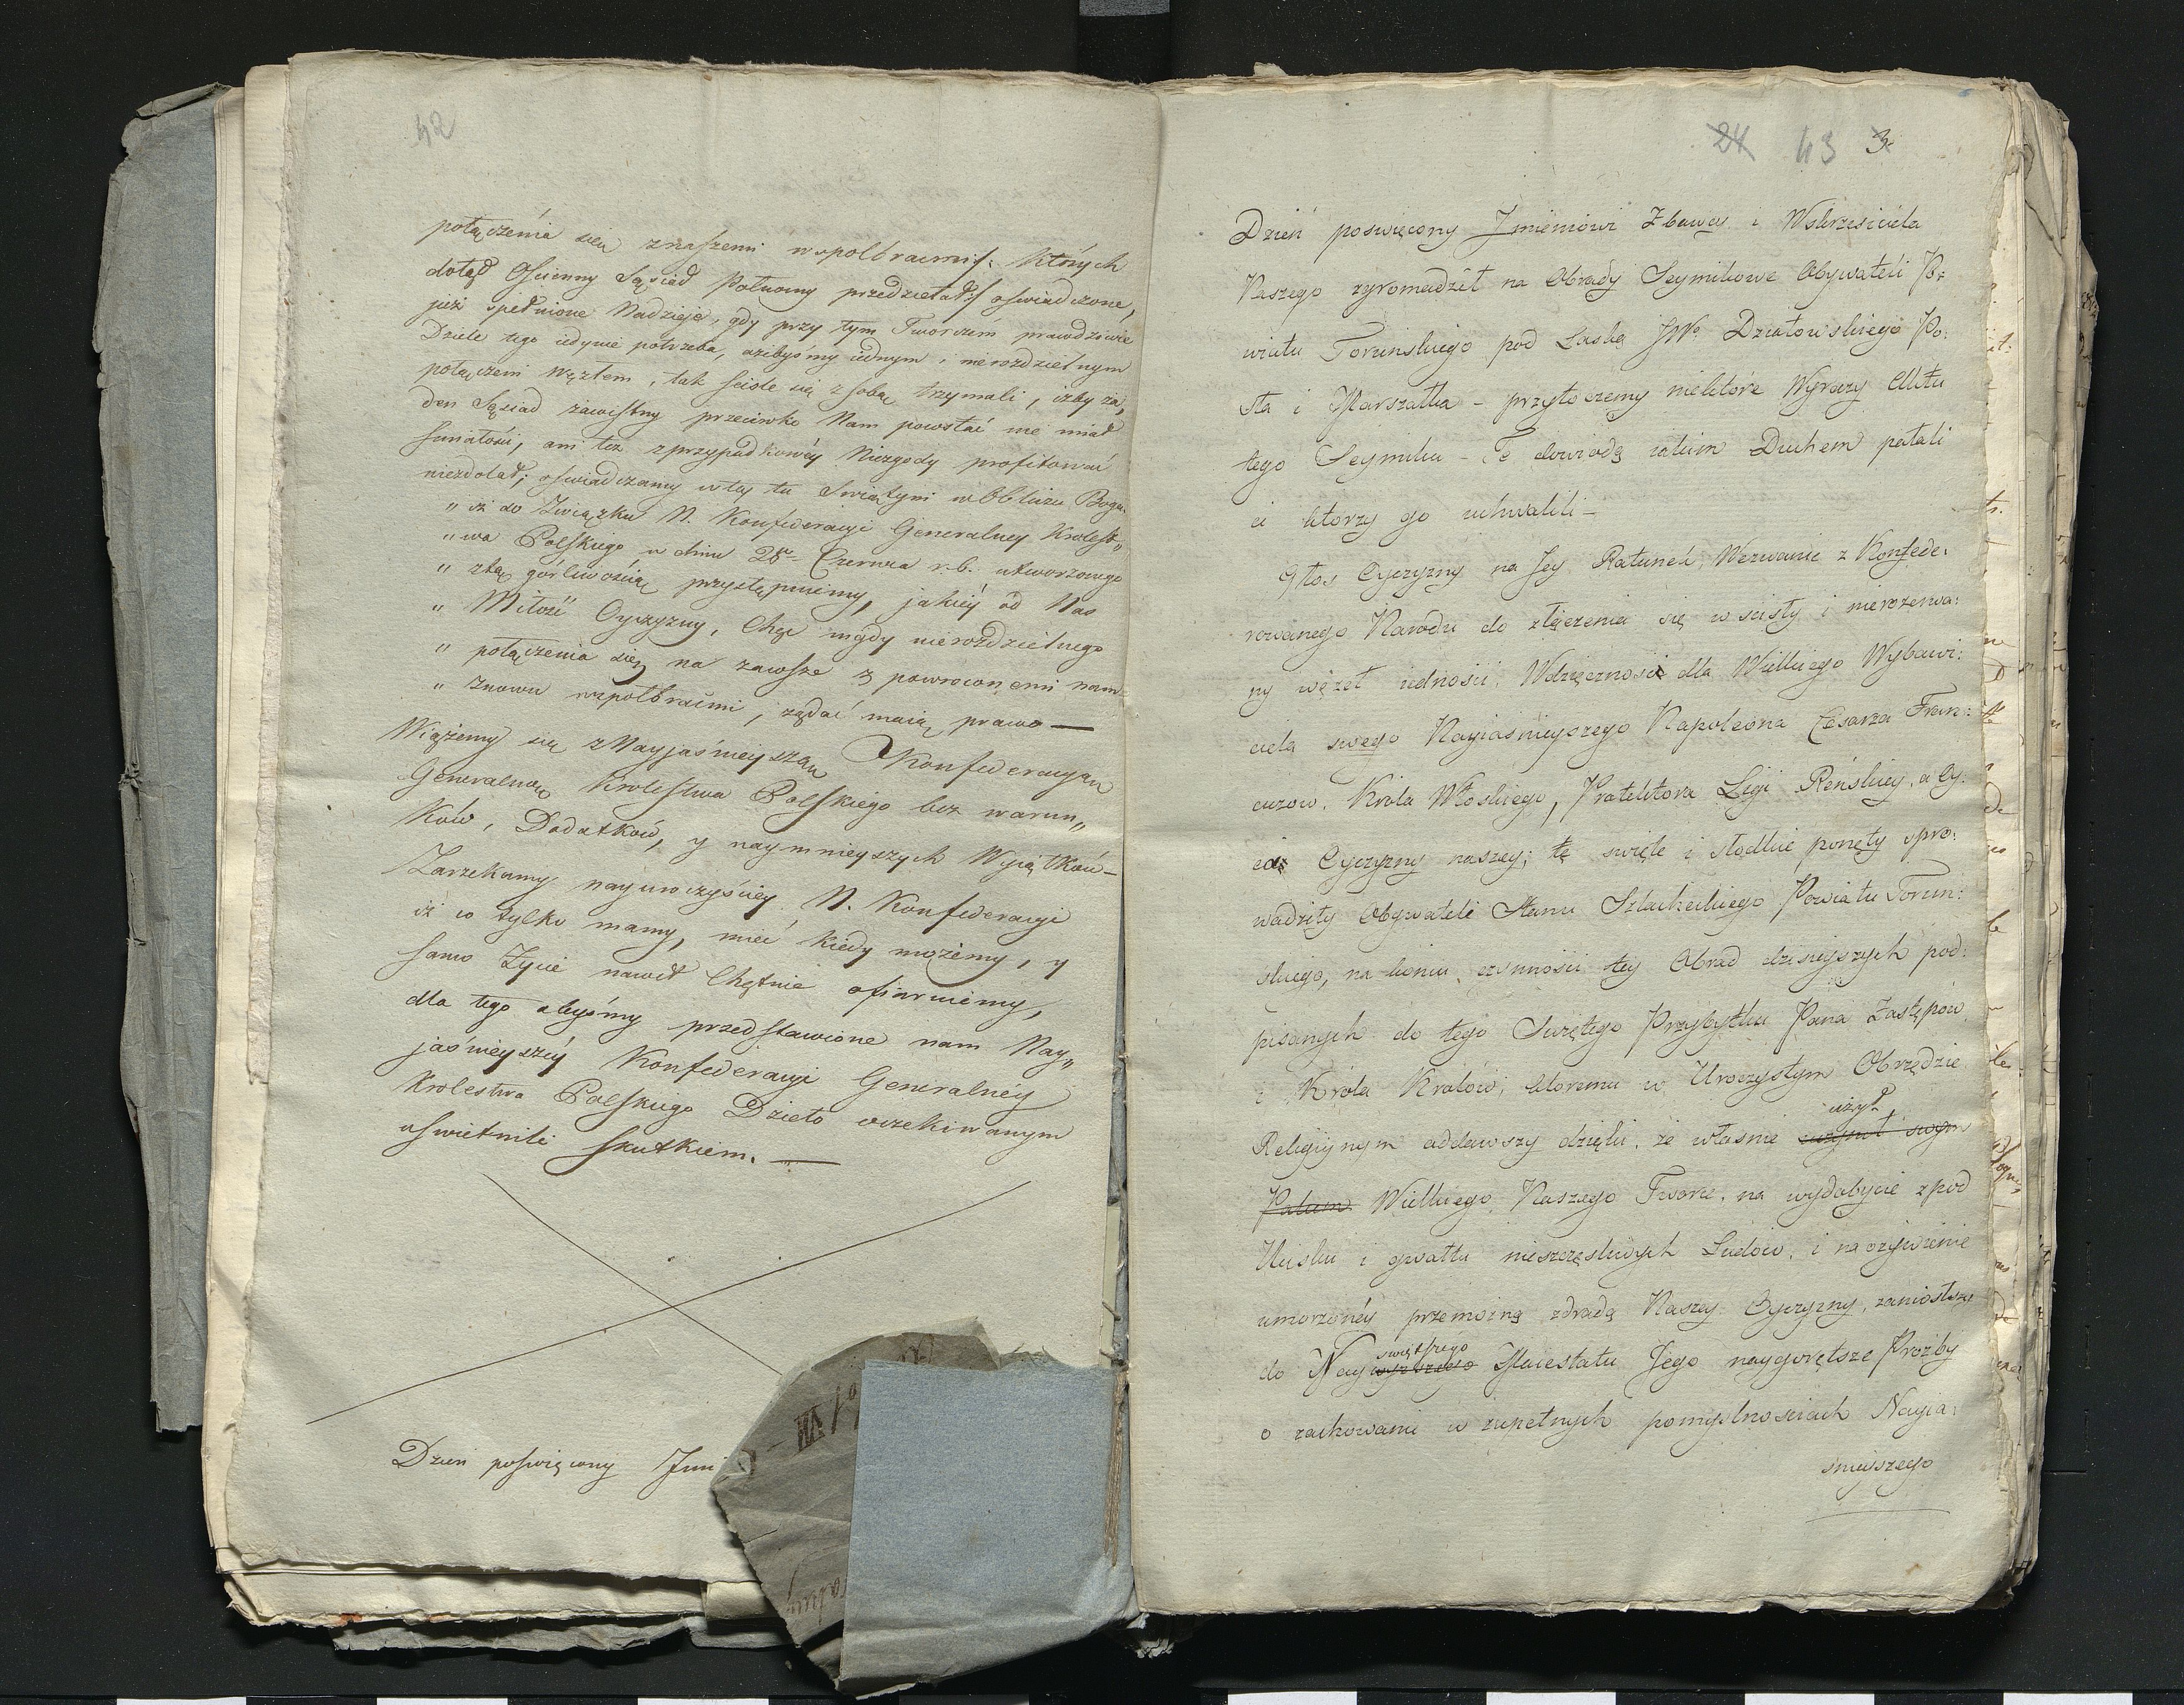 42
połączenia się z naszemi wspolbraćmi, których
dotąd Ościenny Sąsiad Połnocny przedzielał, oświadczone,
już spełnione Nadzieje, gdy przy tym Tworczem prawdziwie
Dziele tego iedynie potrzeba, ażebyśmy iednym i nierozdzielnym
połączeni Węzłem, tak scisle się z sobą trzymali, iżby ża„
den Sąsiad zawistny przeciwko Nam powstać nie miał
smiałości, ani też z przypadkowéy Niezgody profitować
niezdołał; oswiadczamy w tey tu Swiątyni w Obliczu Boga
„ iż do Związku N. Konfederacyi Generalney Krolest„
„ wa Polskiego w dniu 28 Czerwca r. b. utworzonego
„ z tą górliwością przystępuiemy, jakiéy od Nas
„ Miłość Oyczyzny, Chęć nigdy nierozdzielnego
„ połączenia się na zawsze z powroconemi nam
„ znowu współbraćmi, żądać maią prawo —
Wiążemy się z Nayjaśnieyszą Konfederacyą
Generalną Krolestwa Polskiego bez warun„
ków, Dodatków, y naymnieyszych Wyiątków –
Zarzekamy nayuroczyściey N. Konfederacyi
iż co tylko mamy, mieć kiedy możemy, y
samo Życie nawet Chętnie ofiaruiemy,
dla tego abyśmy przedstawione nam Nay„
jaśnieyszéy Konfederacyi Generalnéy
Krolestwa Polskiego Dzieło oczekiwanym
uswietnili skutkiem. —
Dzień poswięcony Jmi
VII
24 43 3
Dzień poswięcony Jmieniowi Zbawcy i Wskrzesiciela
Naszego zgromadził na Obrady Seymikowe Obywateli Po:
wiatu Torunskiego pod Laską JWo Działowskiego Po:
sła i Marszałka – przytoczemy niektóre Wyrazy Aktu
tego Seymiku – Te dowiodą iakim Duchem pałali
ci ktorzy go uchwalili –
Głos Oyczyzny na Jey Ratunek, Wezwanie z Konfede:
rowanego Narodu do złączenia się w scisły i nierozerwa:
ny węzeł iedności, Wdzięczność dla Wielkiego Wybawi:
ciela swego Nayiasnieyszego Napoleona Cesarza Fran:
cuzow, Króla Włoskiego, Protektora Ligi Reńskiey, a Oy:
ca Oyczyzny naszey; tę swięte i słodkie ponęty spro:
wadziły Obywateli Stanu Szlacheckiego Powiatu Torun:
skiego, na koniu czynności tey Obrad dzisieyszych pod:
pisanych do tego Swiętego Przybytku Pana Zastępow,
i Króla Krolów, ktoremu w Uroczystym Obrzędzie
Religiynym oddawszy dzięki, że własnie uczynił swym
użył
Palcem Wielkiego Naszego Tworcę, na wydobycie z pod
Ucisku i gwałtu nieszczęsliwych Ludow, i na ożywienie
umorzonéy przemożną zdradą Naszey Oyczyzny, zaniosłszy
swiętszego
do Naywyższego Maiestatu Jego naygorętsze Prożby
o zachowanie w zupełnych pomyslnosciach Nayia:
snieyszego